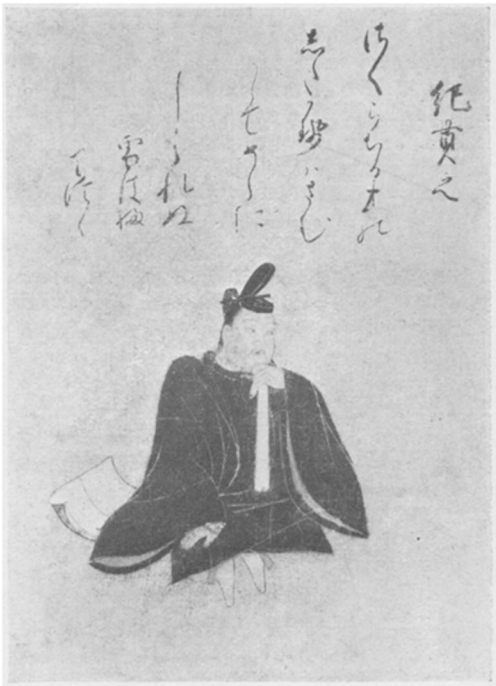 紀貫之
さくらちる木の
した可勢ハさむ
からてそらに
しられぬ
雪そふ
りける